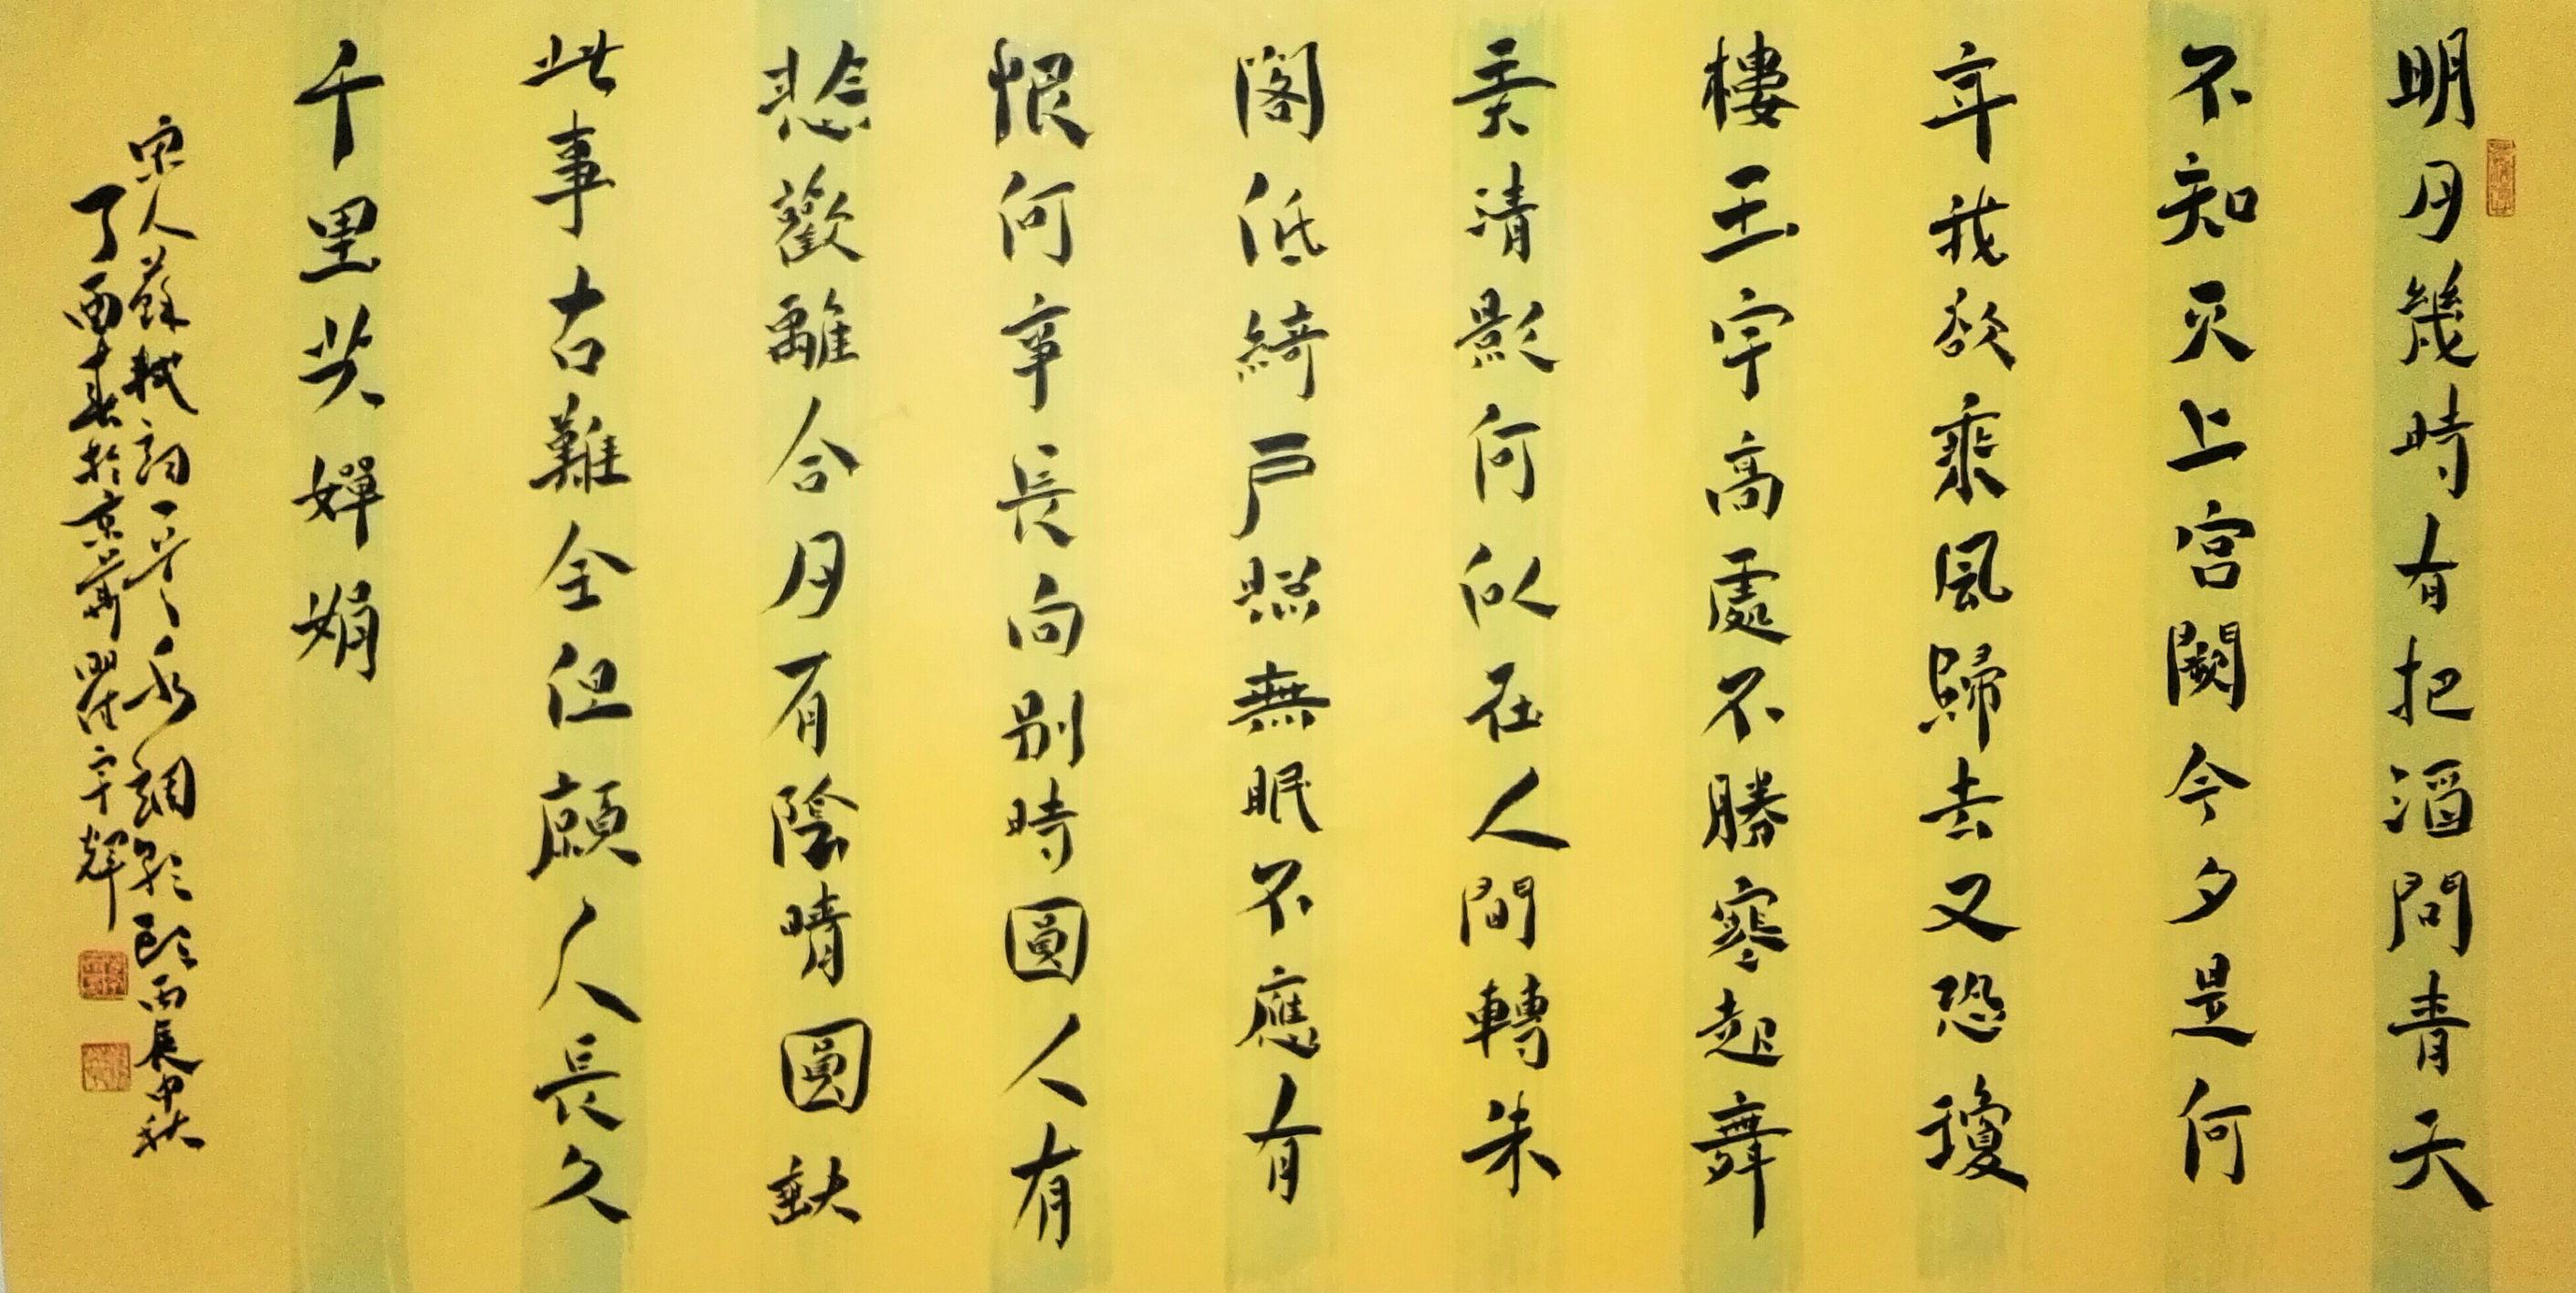 明月幾時有把酒問青天
不知天上宮闕今夕是何
年我欲乘風歸去又恐瓊
樓玉宇高處不勝寒起舞
弄清影何似在人間轉朱
閣低綺戶照無眠不應有
恨何事長向別時圓人有
悲歡離合月有陰晴圓缺
此事古難全但願人長久
千里共嬋娟
宋人蘇軾詞一首水調歌頭丙辰中秋
了西春於京華